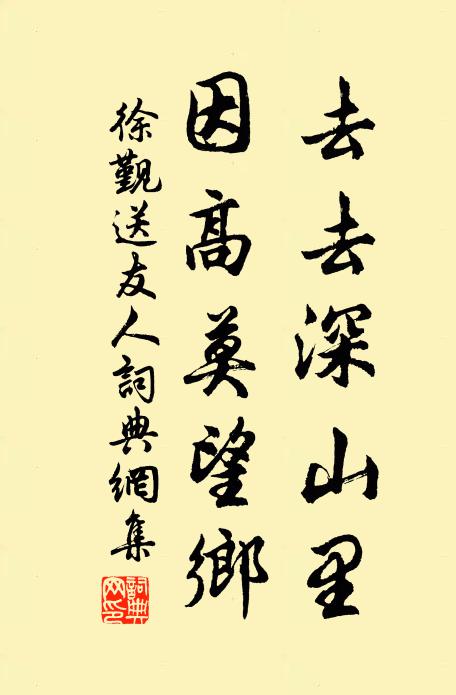 去去深山里
因高莫望鄉
徐觀送友人詞典網集
詞典網印